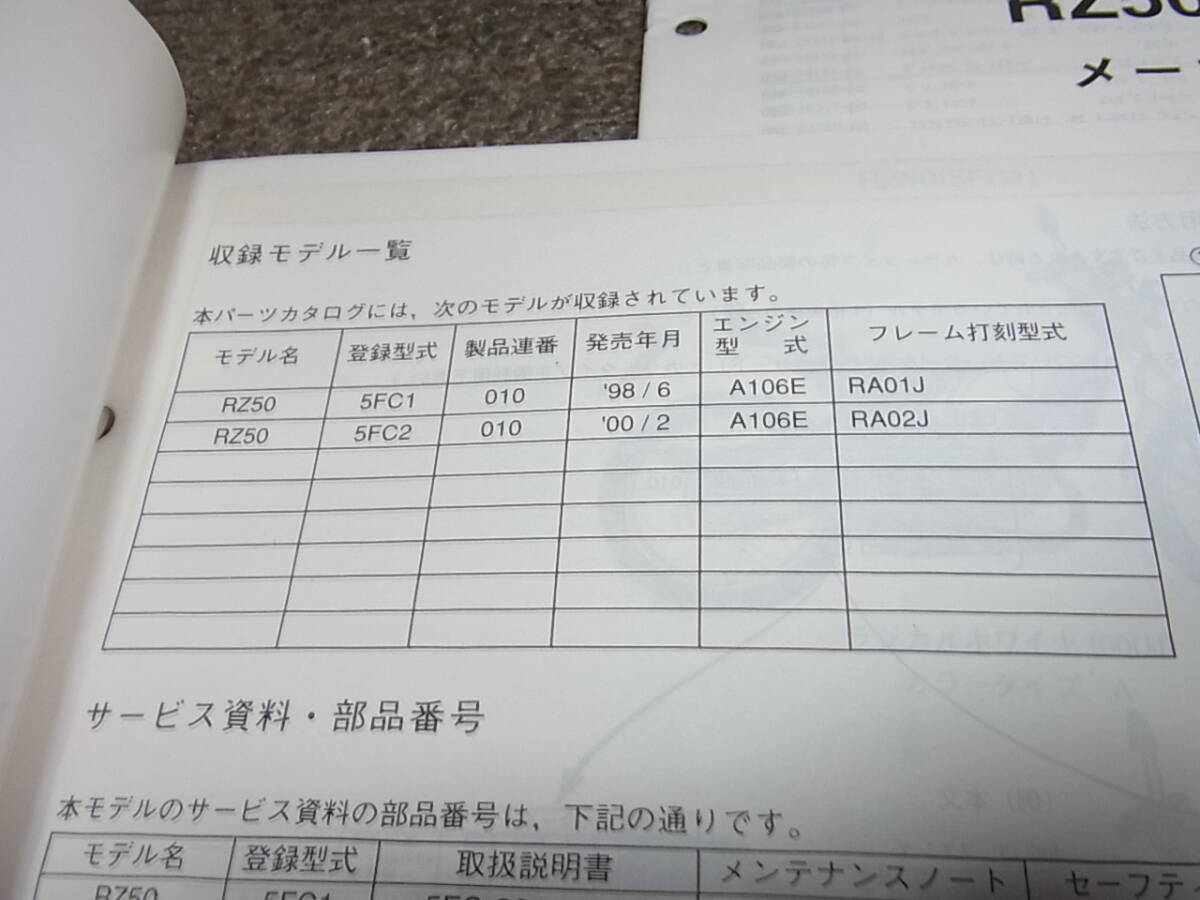 メー
収録モデル一覧
本パーツカタログには，次のモデルが収録されています。
モデル名 登録型式 製品連番 発売年月 エンジン型式 フレーム打刻型式
RZ50 5FC1 010 '98/6 A106E RA01J
RZ50 5FC2 010 '00/2 A106E RA02J
サービス資料・部品番号
本モデルのサービス資料の部品番号は，下記の通りです。
モデル名 登録型式 取扱説明書 メンテナンスノート セーフティ
RZ50 5FC1